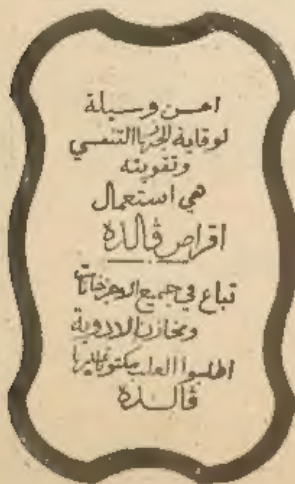 احسن وسيلة
لوقاية الجهاز التنفسي
وتقويته
هي استعمال
اقراص ڤالدة
تباع في جميع الاجزخانات
ومخازن الادوية
اطلبوا العلب مكتوب عليها
ڤالدة